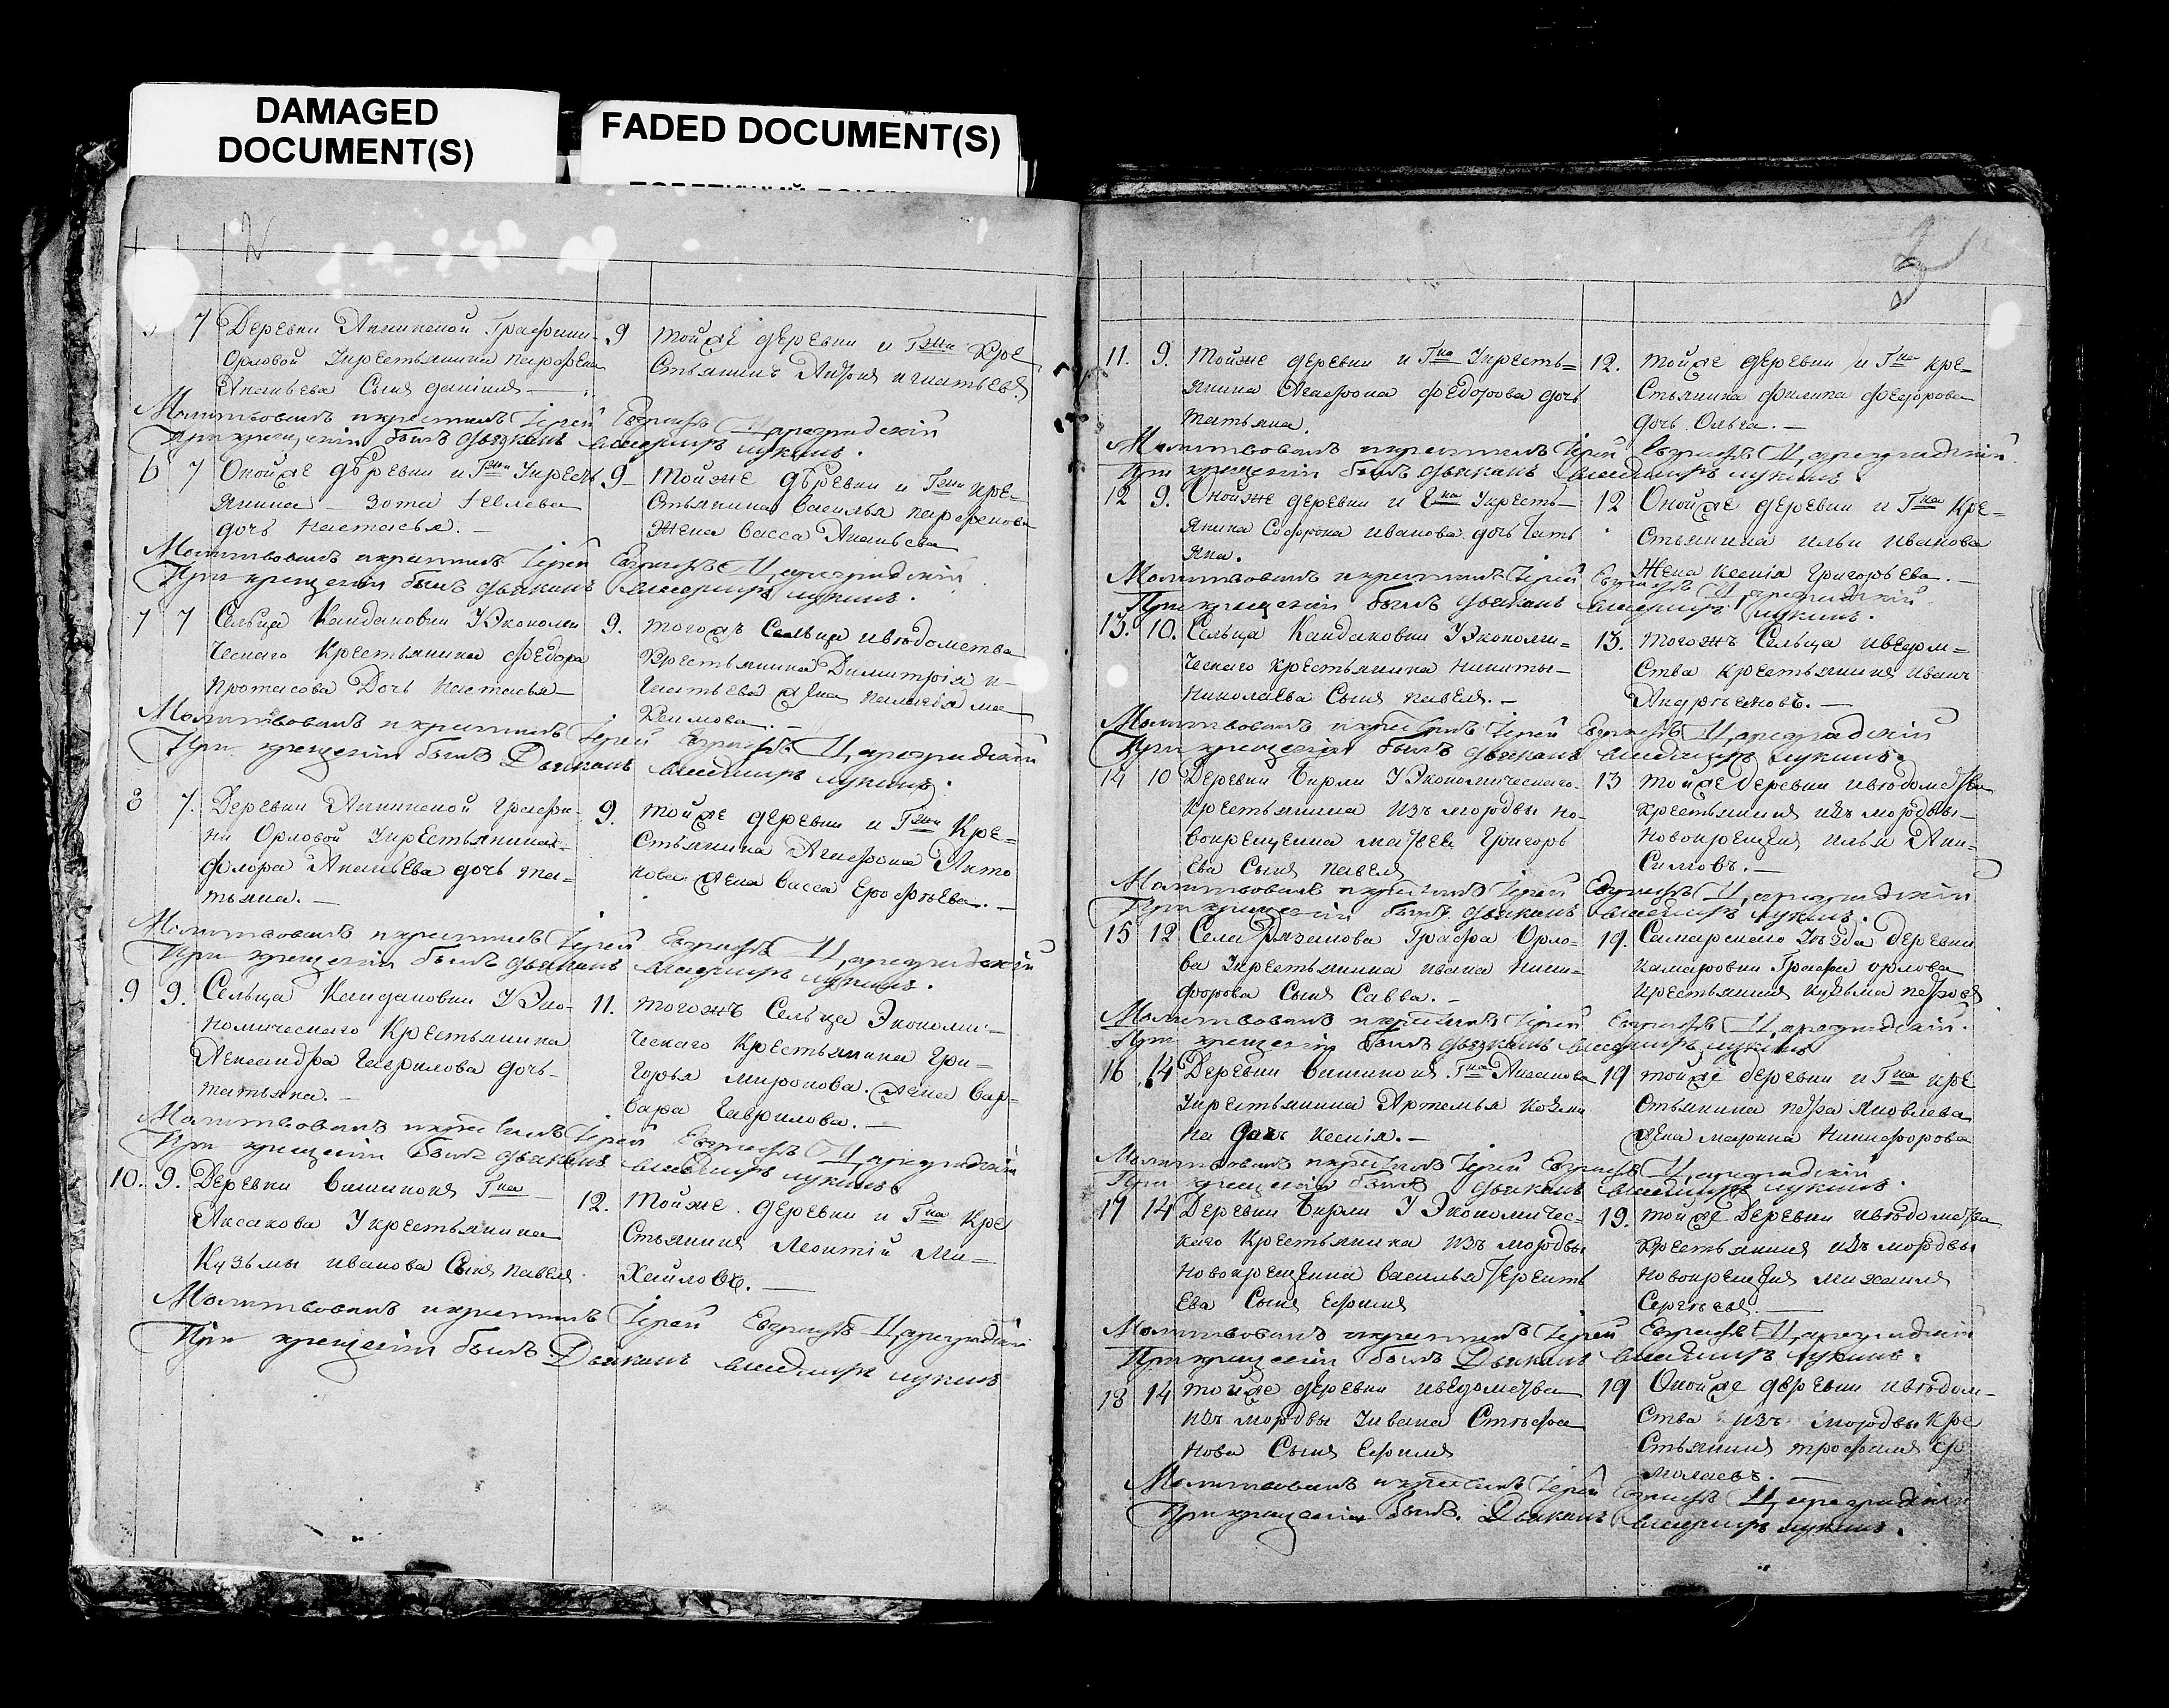 DAMAGED
DOCUMENT(S)
FADED DOCUMENT(S)
7 Деревни Аннинской Графини
Орловой У крестьянина парфена
Ананьева Сынъ данилъ
9 тойже деревни и Гжи Кре
стьянинъ игнатьевъ
Молитвовалъ и крестилъ Іерей Евграфъ Цареградскій
При крещеніи былъ дьяконъ владимиръ лукинъ.
6 7 Оной же деревни и Гжи У кресть
янина Зота Іевлева
дочь настасья.
9 Тойже деревни и Гжи кре-
стьянина василья парфенова
Жена васса Ананьева
Молитвовалъ и крестилъ Іерей Евграфъ Цареградскій
При крещеніи былъ дьяконъ владимиръ лукинъ.
7 7 Сельца Кандаковки У Экономи
ческаго Крестьянина федора
протасова Дочь настасья
9. тогожъ Сельца и вѣдомства
Крестьянина Димитрія и-
гнатьева жена пелагея ма
ксимова.
Молитвовалъ и крестилъ Іерей Евграфъ Цареградскій
При крещеніи былъ Дьяконъ владимиръ лукинъ.
8 7. Деревни Аннинской графи-
ни Орловой У крестьянина
флора Ананьева дочь та=
тьяна.
9. тойже деревни и Гжи Кре=
стьянина Агафона Анто
нова жена васса Ерофѣева.
Молитвовалъ и крестилъ Іерей Евграфъ Цареградскій
При крещеніи былъ дьяконъ владимиръ лукинъ.
9 9. Сельца Кандаковки У Эко-
номическаго Крестьянина
Александра Гаврилова дочь
татьяна.
11. тогожъ Сельца Экономи-
ческаго Крестьянина Гри-
горья миронова. жена вар=
вара Гаврилова.
Молитвовалъ и крестилъ Іерей Евграфъ Цареградскій
При крещеніи былъ дьяконъ владимиръ лукинъ
10. 9. Деревни вишинокъ Гна
Аксакова У крестьянина
Кузьмы иванова Сынъ павелъ
12. Тойже деревни и Гна Кре
стьянинъ Леонтій Ми=
хайловъ.
Молитвовалъ и крестилъ Іерей Евграфъ Цареградскій
При крещеніи былъ Дьяконъ владимиръ лукинъ
11. 9. Тойже деревни и Гна У кресть=
янина Агафона федорова дочь
татьяна.
12. тойже деревни и Гна кре=
стьянина филипа федорова
дочь Ольга.
Молитвовалъ и крестилъ Іерей Евграфъ Цареградскій
При крещеніи былъ дьяконъ владимиръ лукинъ.
12 9. Оной же деревни и Гна У кресть-
янина Софрона иванова дочь тать
яна.
12 Оной же деревни и Гна Кре=
стьянина ильи иванова
Жена Ксенія Григорьева.
Молитвовалъ и крестилъ Іерей Евграфъ Цареградскій
При крещеніи былъ дьяконъ владимиръ лукинъ.
13. 10. Сельца Кандаковки У Экономи=
ческаго крестьянина никиты
николаева Сынъ павелъ.
13. тогожъ Сельца и ведом=
ства Крестьянинъ иванъ
Андрѣеновъ.
Молитвовалъ и крестилъ Іерей Евграфъ Цареградскій
При крещеніи былъ дьяконъ владимиръ лукинъ.
14 10 Деревни бирли У Экономическаго
крестьянина изъ мордвы но-
вокрещенна матвея Григорь
ева Сынъ павелъ
13 тойже деревни и вѣдомства
крестьянинъ изъ мордвы
новокрещенъ илья Ани-
симовъ.
Молитвовалъ и крестилъ Іерей Евграфъ Цареградскій
При крещеніи былъ дьяконъ владимиръ лукинъ.
15 12 Села Рязанова Графа Орло=
ва У крестьянина ивана ники=
форова Сынъ Савва.
19. Самарскаго Уѣзда деревни
камаровки Графа орлова
крестьянинъ кузьма петровъ
Молитвовалъ и крестилъ Іерей Евграфъ Цареградскій.
При крещеніи былъ дьяконъ владимиръ лукинъ
16 14 Деревни вишинокъ Гна Аксакова
У крестьянина Артемья козми
на дочь Ксенія.
19 тойже деревни и Гна кре
стьянина петра Яковлева
жена марина Никифорова
Молитвовалъ и крестилъ Іерей Евграфъ Цареградскій
При крещеніи былъ дьяконъ владимиръ лукинъ.
17 14 Деревни бирли У Экономичес=
каго Крестьянина изъ мордвы
новокрещенна василья терентъ
ева Сынъ Ефимъ
19. тойже деревни и вѣдомства
Крестьянинъ изъ мордвы
новокрещенъ михаилъ
Сергѣевъ.
Молитвовалъ и крестилъ Іерей Евграфъ Цареградскій
При крещеніи былъ Дьяконъ владимиръ лукинъ.
18 14 той же деревни и ведомства
изъ мордвы У ивана Стефа
нова Сынъ Ефимъ
19 Оной же деревни и вѣдом-
ства изъ мордвы Кре
стьянинъ трофимъ Ер
молаевъ.
Молитвовалъ и крестилъ Іерей Евграфъ Цареградскій
При крещеніи былъ. Дьяконъ владимиръ лукинъ.